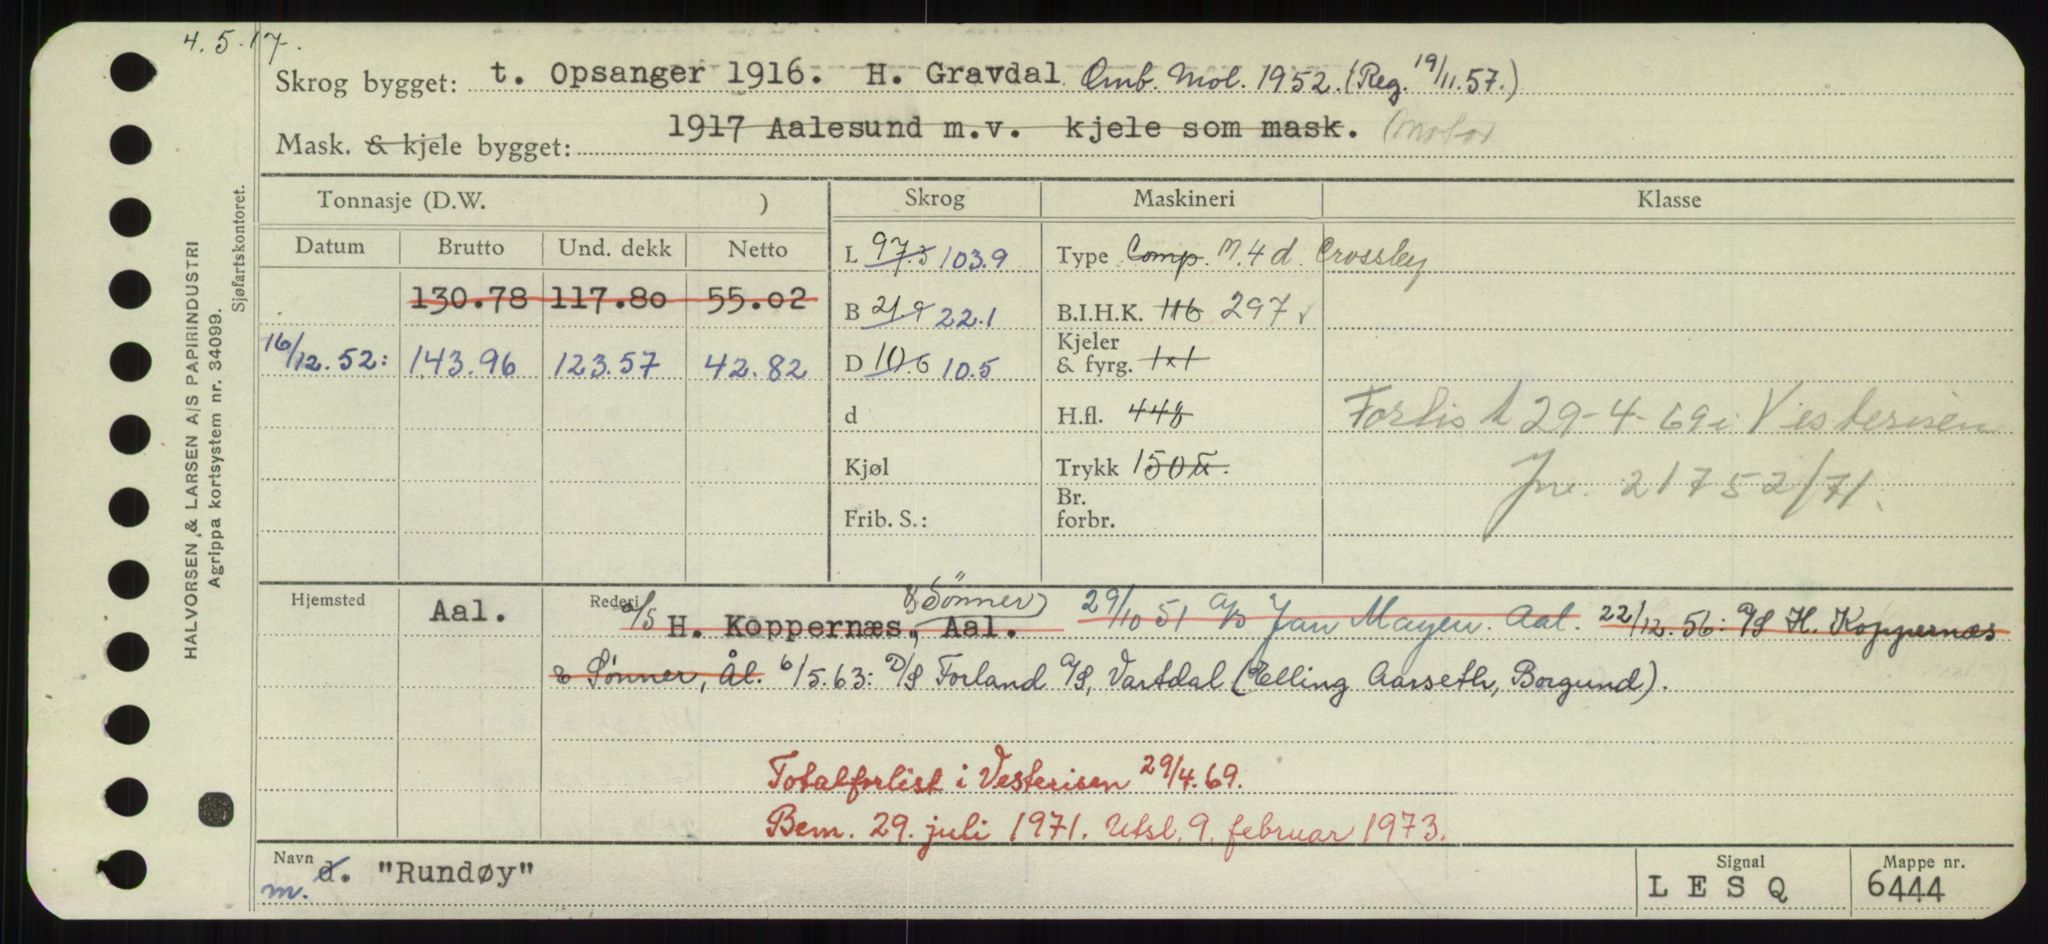 4.5.17.
Skrog bygget: t. Opsanger 1916. H. Gravdal Omb. Mol. 1952. (Reg. 19/11.57.)
Mask. & kjele bygget: 1917 Aalesund m.v. kjele som mask. (Motor
Tonnasje (D.W. ) Skrog Maskineri Klasse
Datum Brutto Und. dekk Netto L 97.5 103.9 Type Comp. M. 4 d. Crossley
130.78 117.80 55.02 B 21.9 22.1 B.I.H.K. 116 297
16/12.52: 143.96 123.57 42.82 D 10.6 10.5 Kjeler & fyrg. 1x1
d H.fl. 448 Forlist 29-4-69 i Vesterisen
Kjøl Trykk 150 Jnr. 21752/71.
Frib. S.: Br. forbr.
Hjemsted Aal. Rederi a/s H. Koppernæs, & Sønner, Aal. 29/10 51 a/s Jan Mayen. Aal. 22/12.56: A/S H. Koppernæs
& Sønner, Ål. 6/5.63: D/S Forland A/S, Vartdal (Elling Aarseth, Borgund).
Totalforlist i Vesterisen 29/4.69.
Bem. 29. juli 1971. Utsl. 9. februar 1973.
Navn d. m. "Rundøy" Signal LESQ Mappe nr. 6444
HALVORSEN & LARSEN A/S PAPIRINDUSTRI
Agrippa kortsystem nr. 34099.
Sjøfartskontoret.